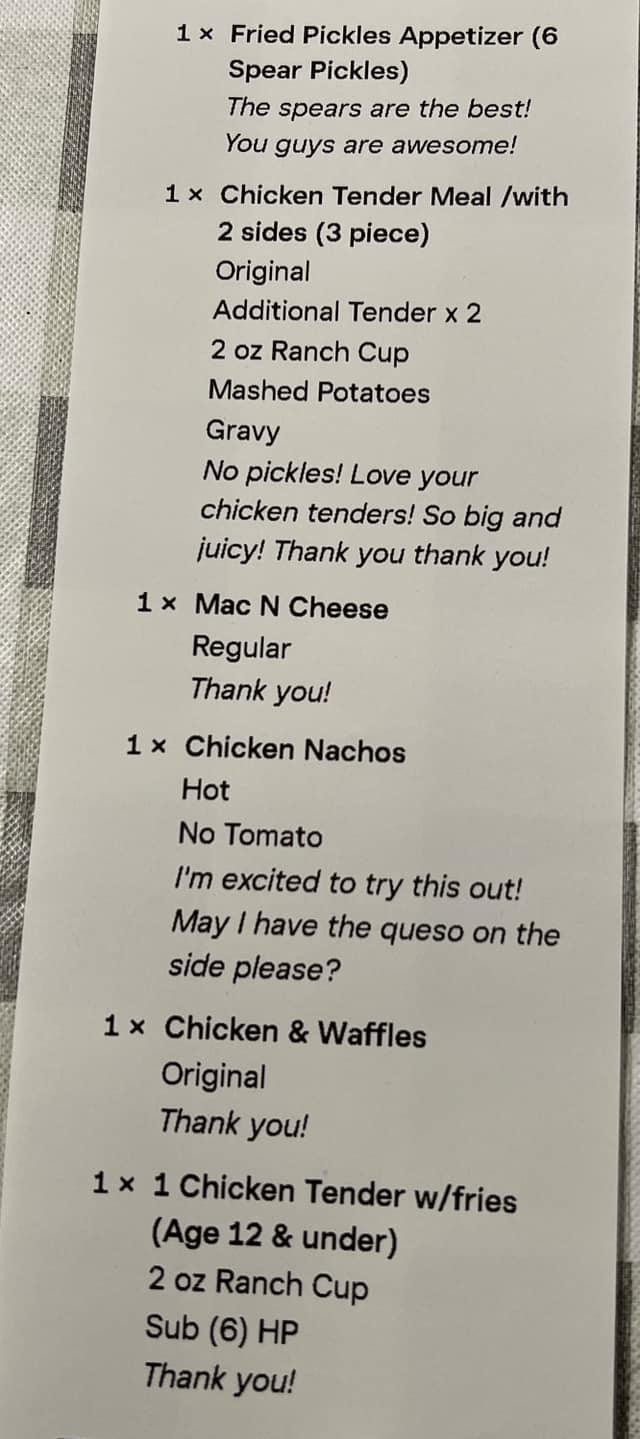 1 × Fried Pickles Appetizer (6
Spear Pickles)
The spears are the best!
You guys are awesome!
1 × Chicken Tender Meal /with
2 sides (3 piece)
Original
Additional Tender x 2
2 oz Ranch Cup
Mashed Potatoes
Gravy
No pickles! Love your
chicken tenders! So big and
juicy! Thank you thank you!
1 × Mac N Cheese
Regular
Thank you!
1 × Chicken Nachos
Hot
No Tomato
I'm excited to try this out!
May I have the queso on the
side please?
1 × Chicken & Waffles
Original
Thank you!
1 × 1 Chicken Tender w/fries
(Age 12 & under)
2 oz Ranch Cup
Sub (6) HP
Thank you!